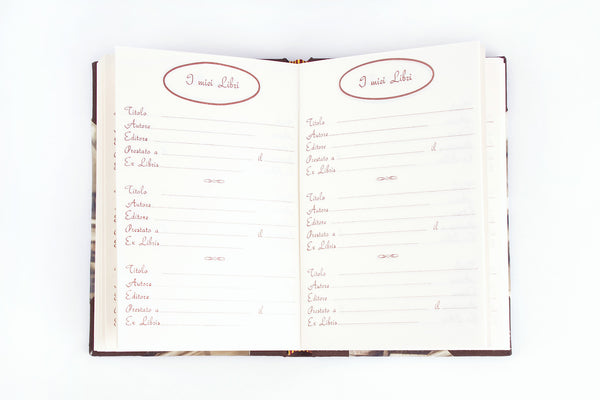 I miei Libri
Titolo
Autore
Editore
Prestato a il
Ex Libris
Titolo
Autore
Editore
Prestato a il
Ex Libris
Titolo
Autore
Editore
Prestato a il
Ex Libris
I miei Libri
Titolo
Autore
Editore
Prestato a il
Ex Libris
Titolo
Autore
Editore
Prestato a il
Ex Libris
Titolo
Autore
Editore
Prestato a il
Ex Libris